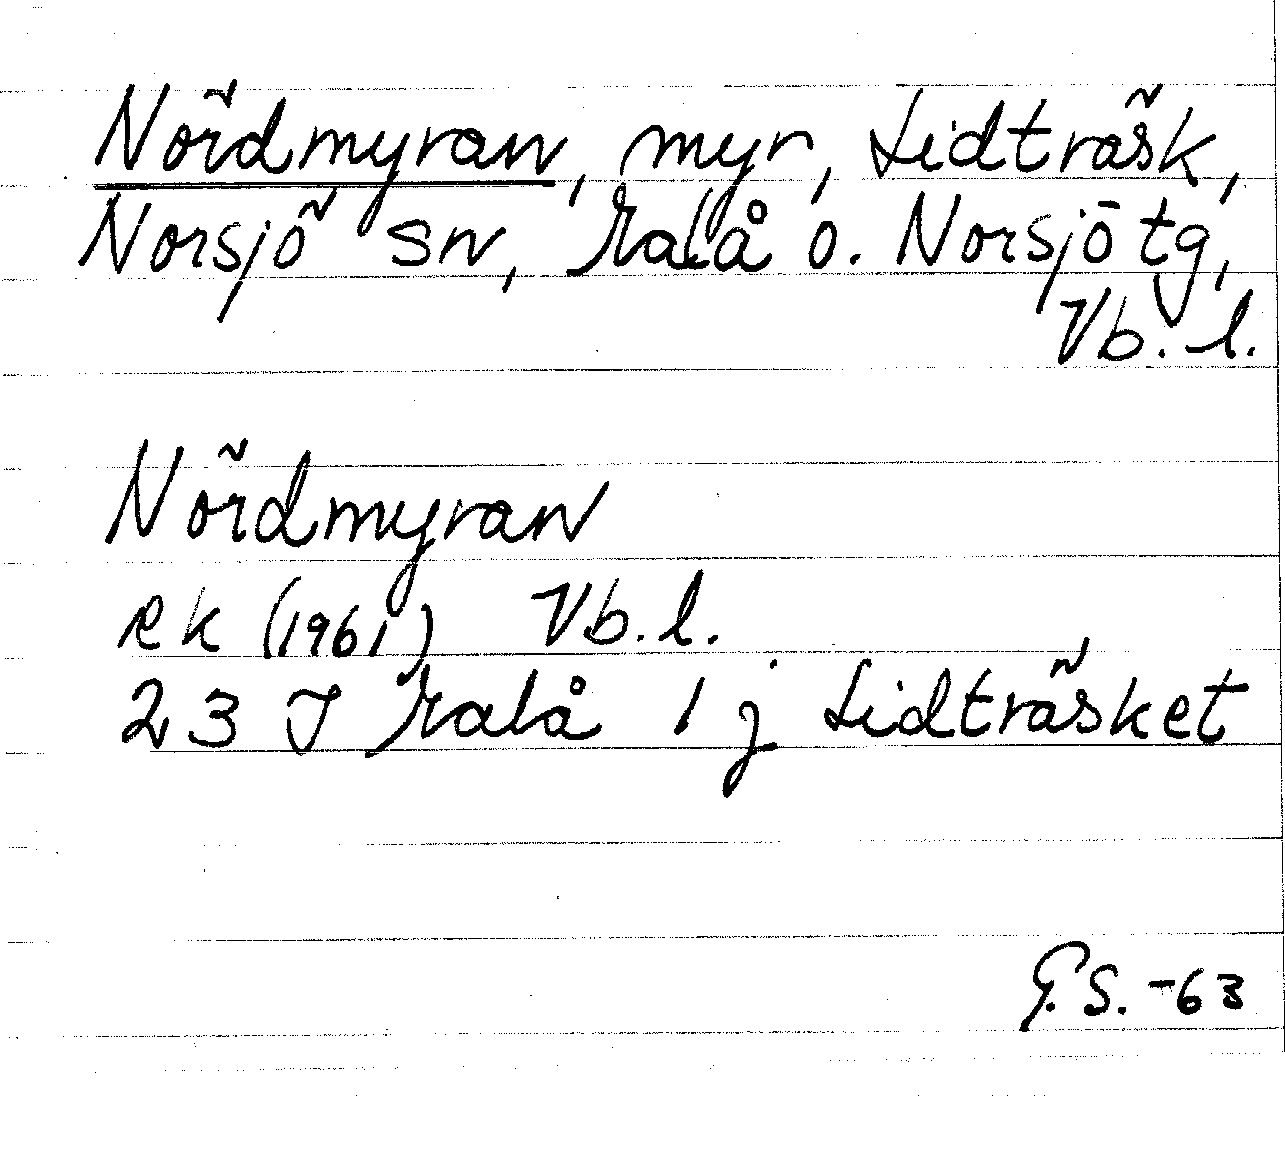 Nördmyran, myr, Lidträsk,
Norsjö sn, Malå o. Norsjö tg,
Vb. l.
Nördmyran
ek (1961) Vb. l.
23 J Malå 1 j Lidträsket
G. S. -63